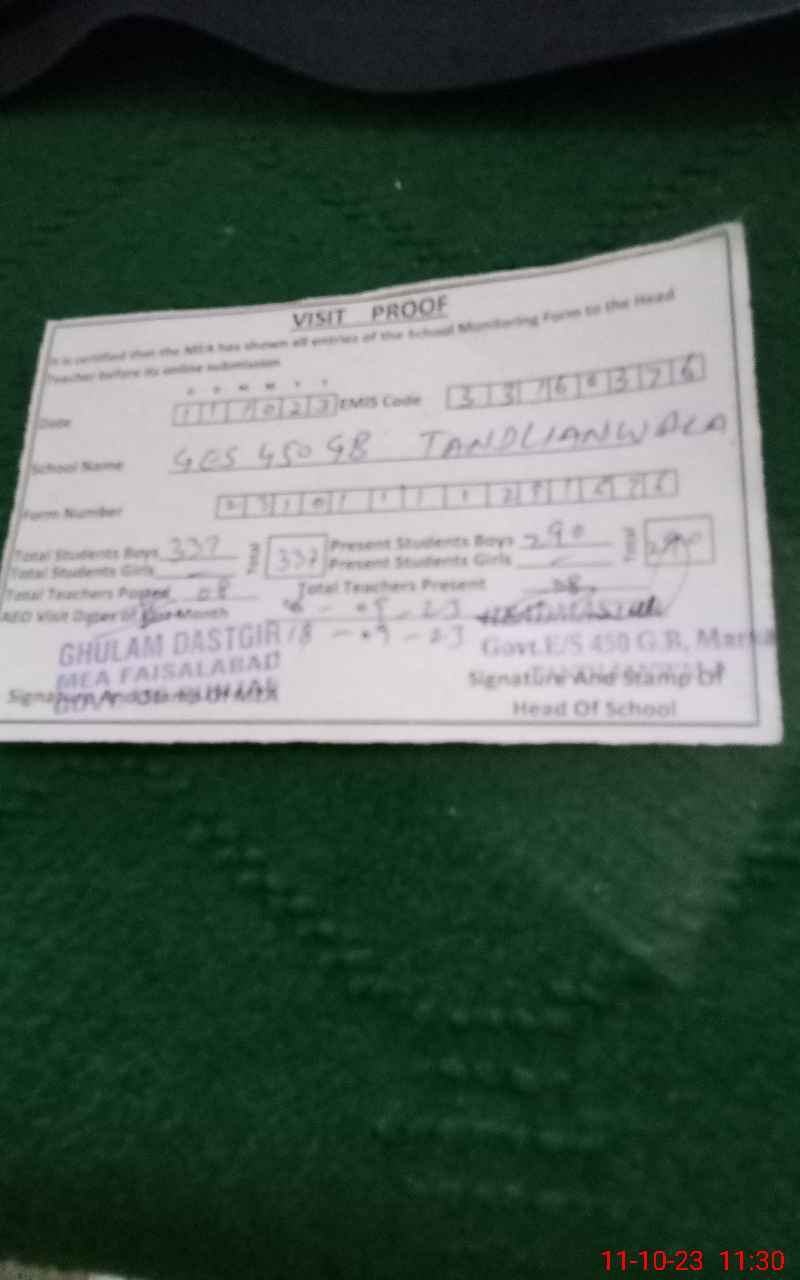 VISIT PROOF
It is certified that the MEA has shown all entries of the School Monitoring Form to the Head
Teacher before its online submission
Date 1 1 1 0 2 3 EMIS Code 3 3 1 6 0 3 7 6
School Name GES 450 GB TANDLIANWALA
Form Number
Total Students Boys 337 Total 337 Present Students Boys 290 Total 290
Total Students Girls Present Students Girls
Total Teachers Posted 08 Total Teachers Present 08
AEO Visit Dates of Month
18 - 09 - 23
GHULAM DASTGIR
MEA FAISALABAD
Govt. E/S 450 G.B, Mark
Signature And Stamp Of MEA
Signature And Stamp Of
Head Of School
11-10-23 11:30